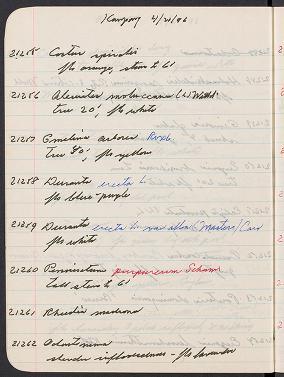 Kampong 4/21/86
21255 Costus spiralis
fls orange, stem to 6'
21256 Aleurites moluccana (L.) Willd.
tree 20', fls white
21257 Gmelina arborea Roxb
Tree 80', fls yellow
21258 Duranta erecta L.
fls blue-purple
21259 Duranta erecta L. var alba (Masters) Caro
fls white
21260 Pennisetum purpureum Schum
tall stems to 6'
21261 Rhedia madrona
21262
slender inflorescences - fls lavender